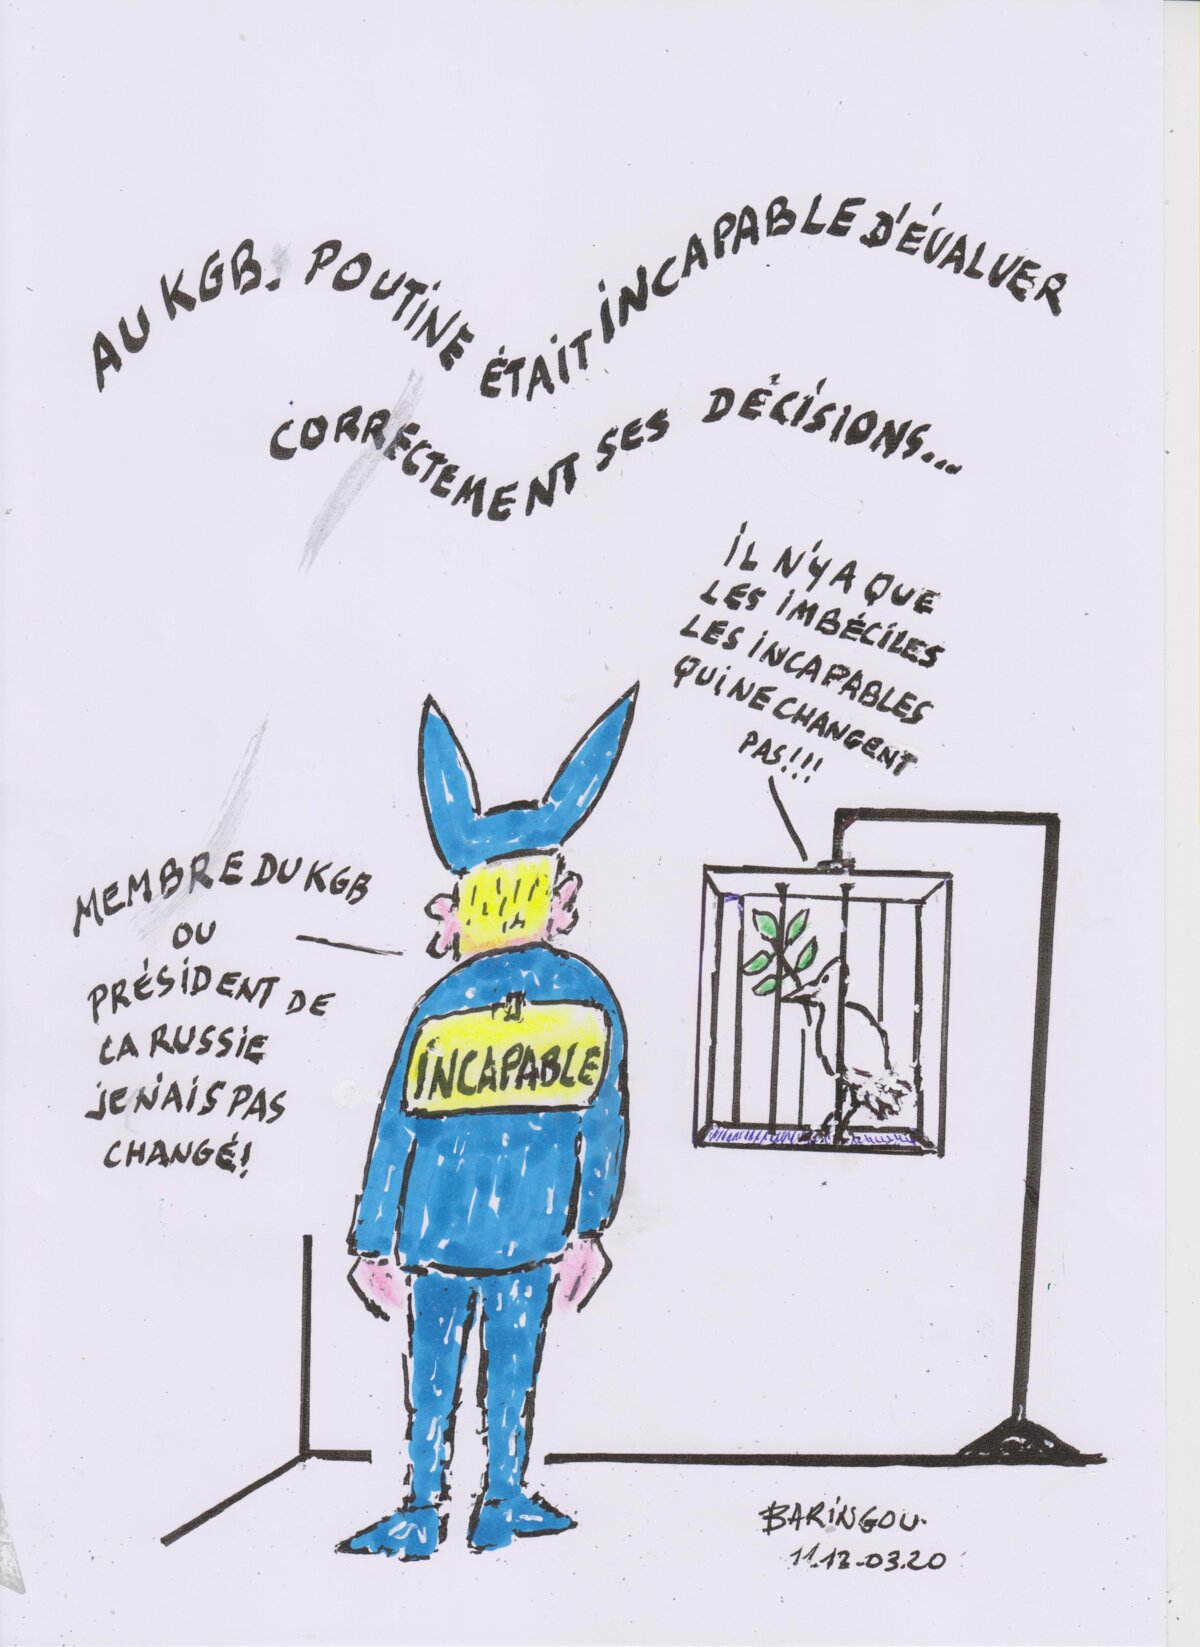 AU KGB. POUTINE ÉTAIT INCAPABLE D'ÉVALUER
CORRECTEMENT SES DÉCISIONS...
IL N'Y A QUE
LES IMBÉCILES
LES INCAPABLES
QUI NE CHANGENT
PAS!!!
MEMBRE DU KGB
OU
PRÉSIDENT DE
LA RUSSIE
JE N'AIS PAS
CHANGÉ!
INCAPABLE
BARINGOU.
11.12-03.20